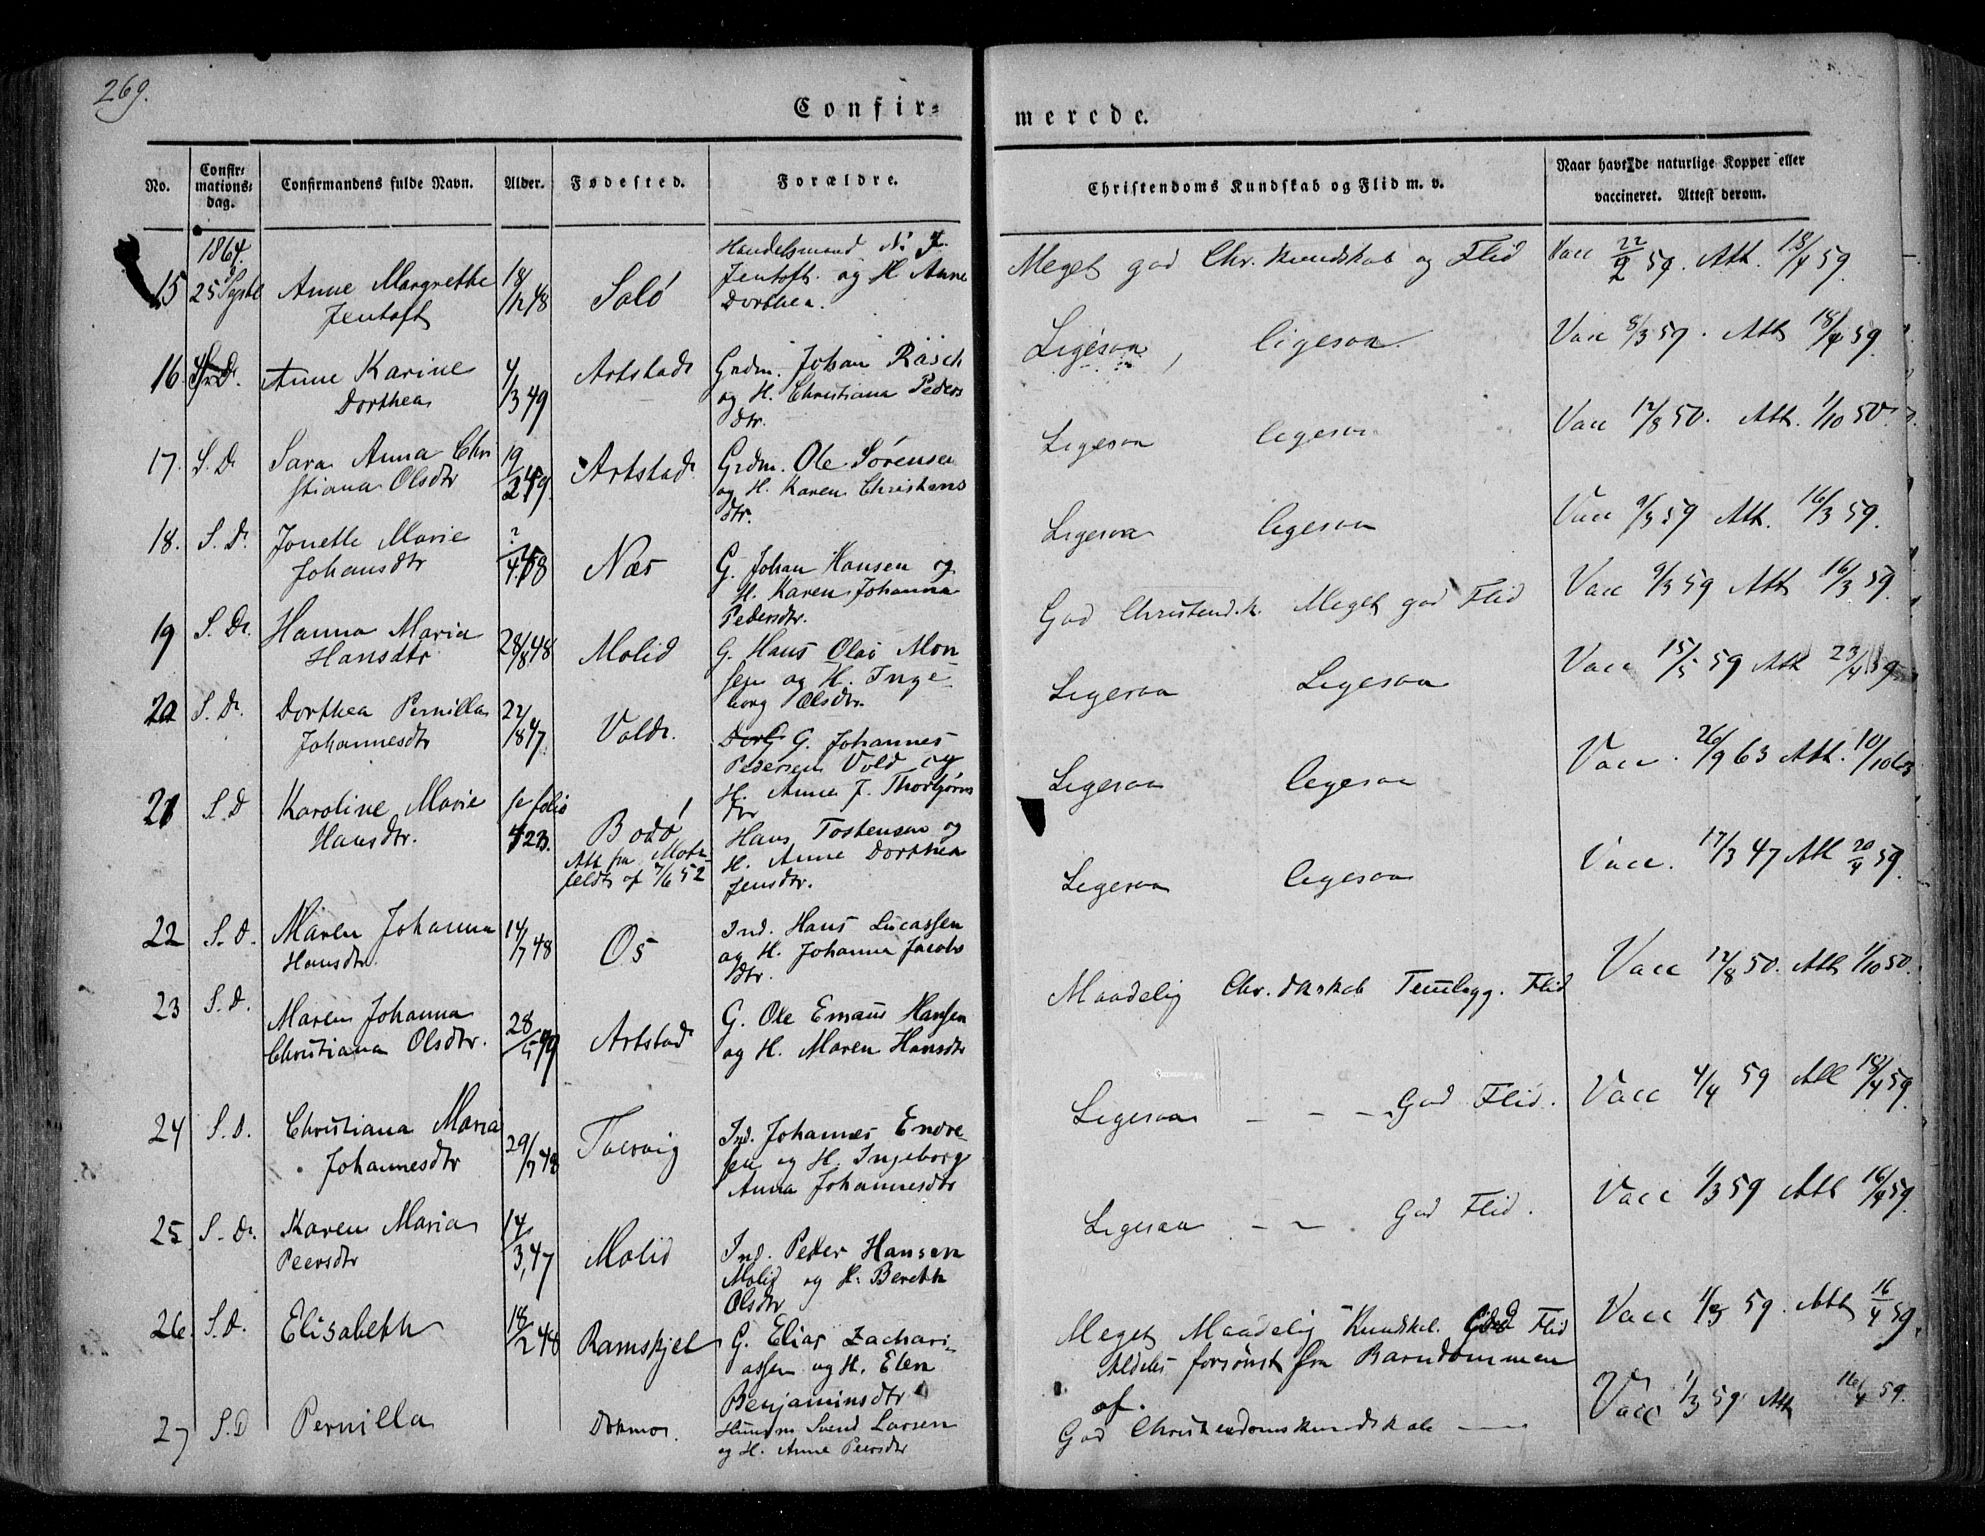 269.
Confir=
merede.
No.
Confir-
mations-
dag.
Confirmandens fulde Navn.
Alder.
Fødested.
Forældre.
Christendoms Kundskab og Flid m. v.
Naar havt de naturlige Kopper eller
vaccineret. Attest derom.
1864.
15 25 Sept Anne Margrethe
Jentoft
18/12 48
Salö
Handelsmand
Jentoft og H. Anne
Dorthea.
Meget god Chr. kundskab og Flid
Vacc 22/2 59. Att. 18/4 59.
16. S. D. Anne Karine
Dorthea
4/3 49
Artstad
Grdm. Johan Räsch
og H. Christiana Peders
dtr.
Ligesaa, ligesaa
Vacc 8/3 59. Att 18/4 59.
17. S. D. Sara Anna Chri
stiana Olsdtr
19/2 49.
Artstad
Grdm. Ole Sörensen
og H. Karen Christens
dtr.
Ligesaa ligesaa
Vacc 12/8 50. Att. 1/10 50.
18. S. D. Jonette Marie
Johansdtr
?/4 48
Næs
G. Johan Hansen og
H. Karen Johanna
Pedersdtr.
Ligesaa ligesaa
Vacc 9/3 59 Att. 16/3 59.
19 S. D. Hanna Maria
Hansdtr
28/8 48
Molid
G. Hans Olai Mon-
sen og H. Inge-
borg Olsdtr
God Christend.k. Meget god Flid
Vacc 9/3 59 Att 16/3 59.
20 S. D. Dorthea Pernilla
Johannesdtr
22/8 47.
Vold.
G. Johannes
Pedersen Vold og
H. Anne J. Thorbjörns
dtr
Ligesaa Ligesaa
Vacc 15/5 59 Att 23/4 59
21 S. D Karoline Marie
Hansdtr.
se folio
423.
Bodö
Att fra Mot
feldt af 7/6 52
Hans Tostensen og
H. Anne Dorthea
Jensdtr.
Ligesaa ligesaa
Vacc. 26/9 63 Att. 10/10 63
22 S. D. Maren Johanna
Hansdtr.
14/7 48
Os
Ind. Hans Lucassen
og H. Johanna Jacobs
dtr.
Ligesaa ligesaa
Vacc. 17/3 47 Att 20/4 59.
23 S. D. Maren Johanna
Christiana Olsdtr.
28/5 49
Artstad
G. Ole Emaus Hansen
og H. Maren Hansdtr
Maadelig Chr. dkskab Flid
Vacc 12/8 50. Att 1/10 50.
24 S. D. Christiana Maria
Johannesdtr
29/7 48
Tvervig
Ind. Johannes Endre-
sen og H. Ingeborg
Anna Johannesdtr
Ligesaa - - - God Flid.
Vacc 4/4 59 Att 18/4 59.
25 S. D. Karen Maria
Peersdtr
14/3 47
Molid
Ind. Peder Hansen
Molid og H. Bereth
Olsdtr
Ligesaa - - . God Flid.
Vacc 1/3 59 Att 16/4 59.
26. S. D. Elisabeth
18/2 48
Ramskjel
G. Elias Zachari-
assen og H. Elen
Benjaminsdtr
Meget Maadelig Kundskab. God Flid
Aldeles forsömt fra Barndommen
af.
Vacc 1/3 59. Att 16/4 59.
27 S. D Pernilla
Dokmo.
Husm Svend Larsen
og H. Anne Peersdtr
God Christendomskundskab —
Vacc 1/3 59. Att 16/4 59.